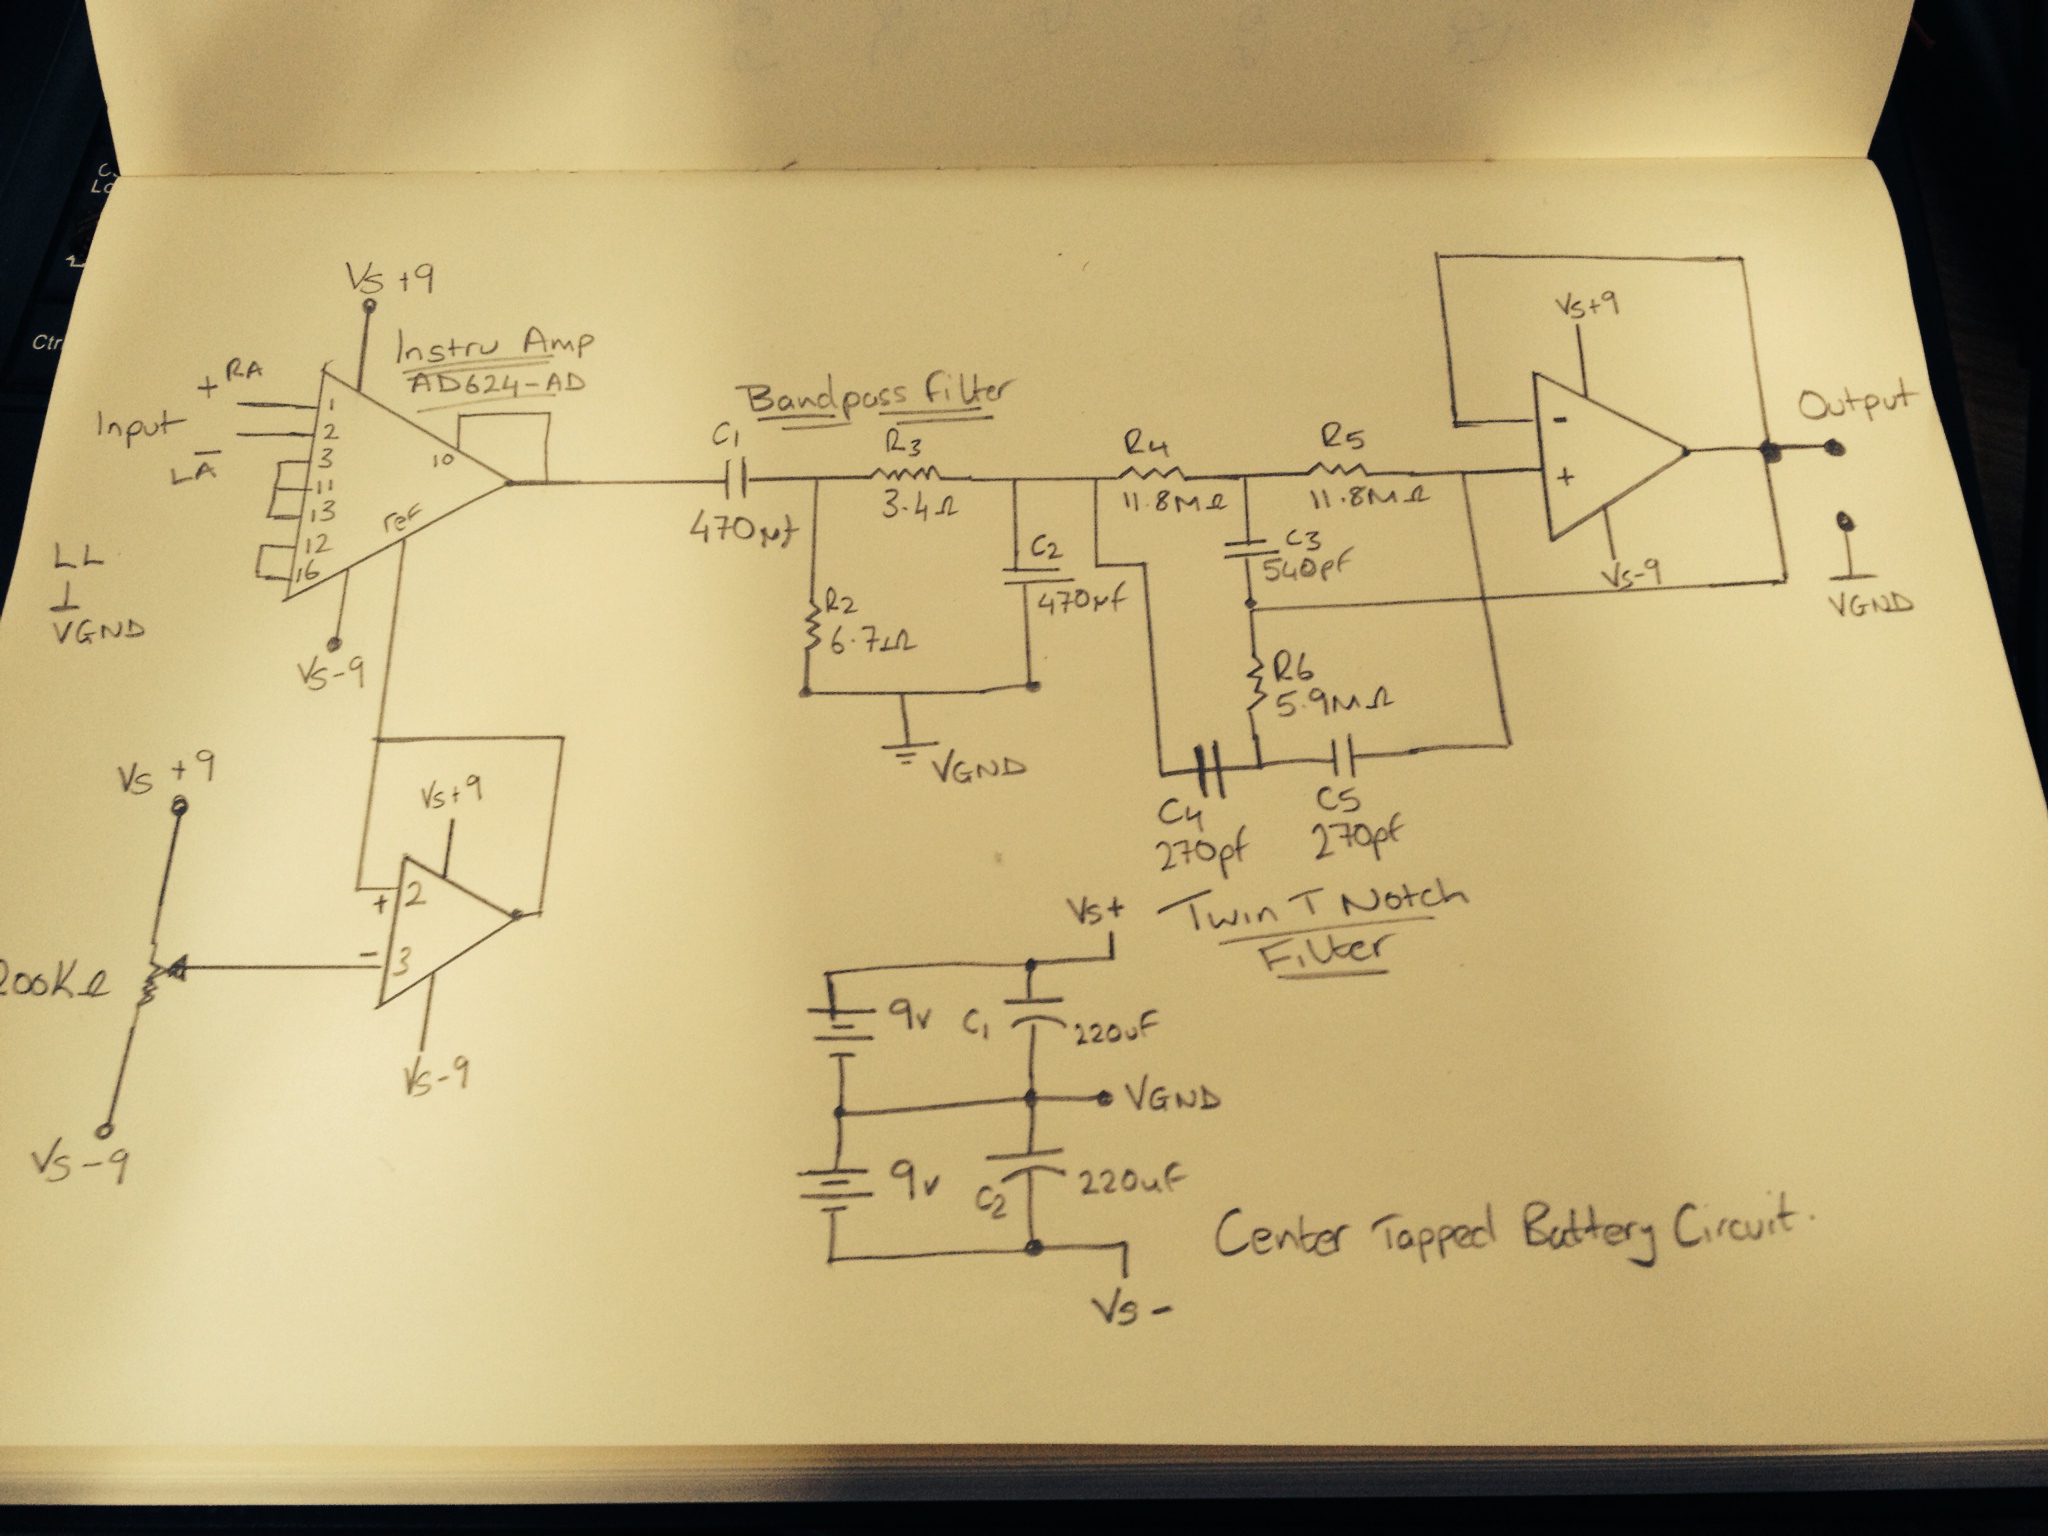 Vs +9
Instru Amp
AD624-AD
+ RA
Input
LA
-
1
2
3
11
13
12
16
10
ref
LL
VGND
Vs-9
Bandpass Filter
C1
470µf
R3
3.4Ω
R2
6.7Ω
C2
470µf
VGND
R4
11.8MΩ
R5
11.8MΩ
C3
540pf
R6
5.9MΩ
C4
270pf
C5
270pf
Twin T Notch
Filter
Vs+9
-
+
Vs-9
Output
VGND
Vs +9
200KΩ
Vs-9
Vs+9
+ 2
- 3
Vs-9
Vs+
9v
C1
220uF
VGND
9v
C2
220uF
Vs-
Center Tapped Battery Circuit.
Ctr